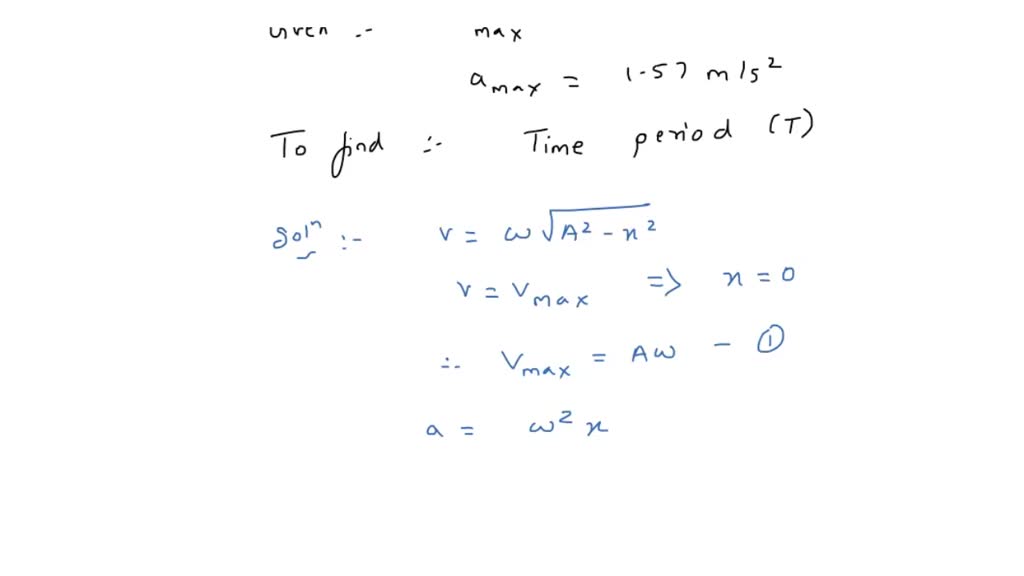 Given :- max
a max = 1.57 m/s²
To find :- Time period (T)
Solⁿ :- v = ω √A² - x²
v = V max => x = 0
∴ V max = Aω - ①
a = ω² x